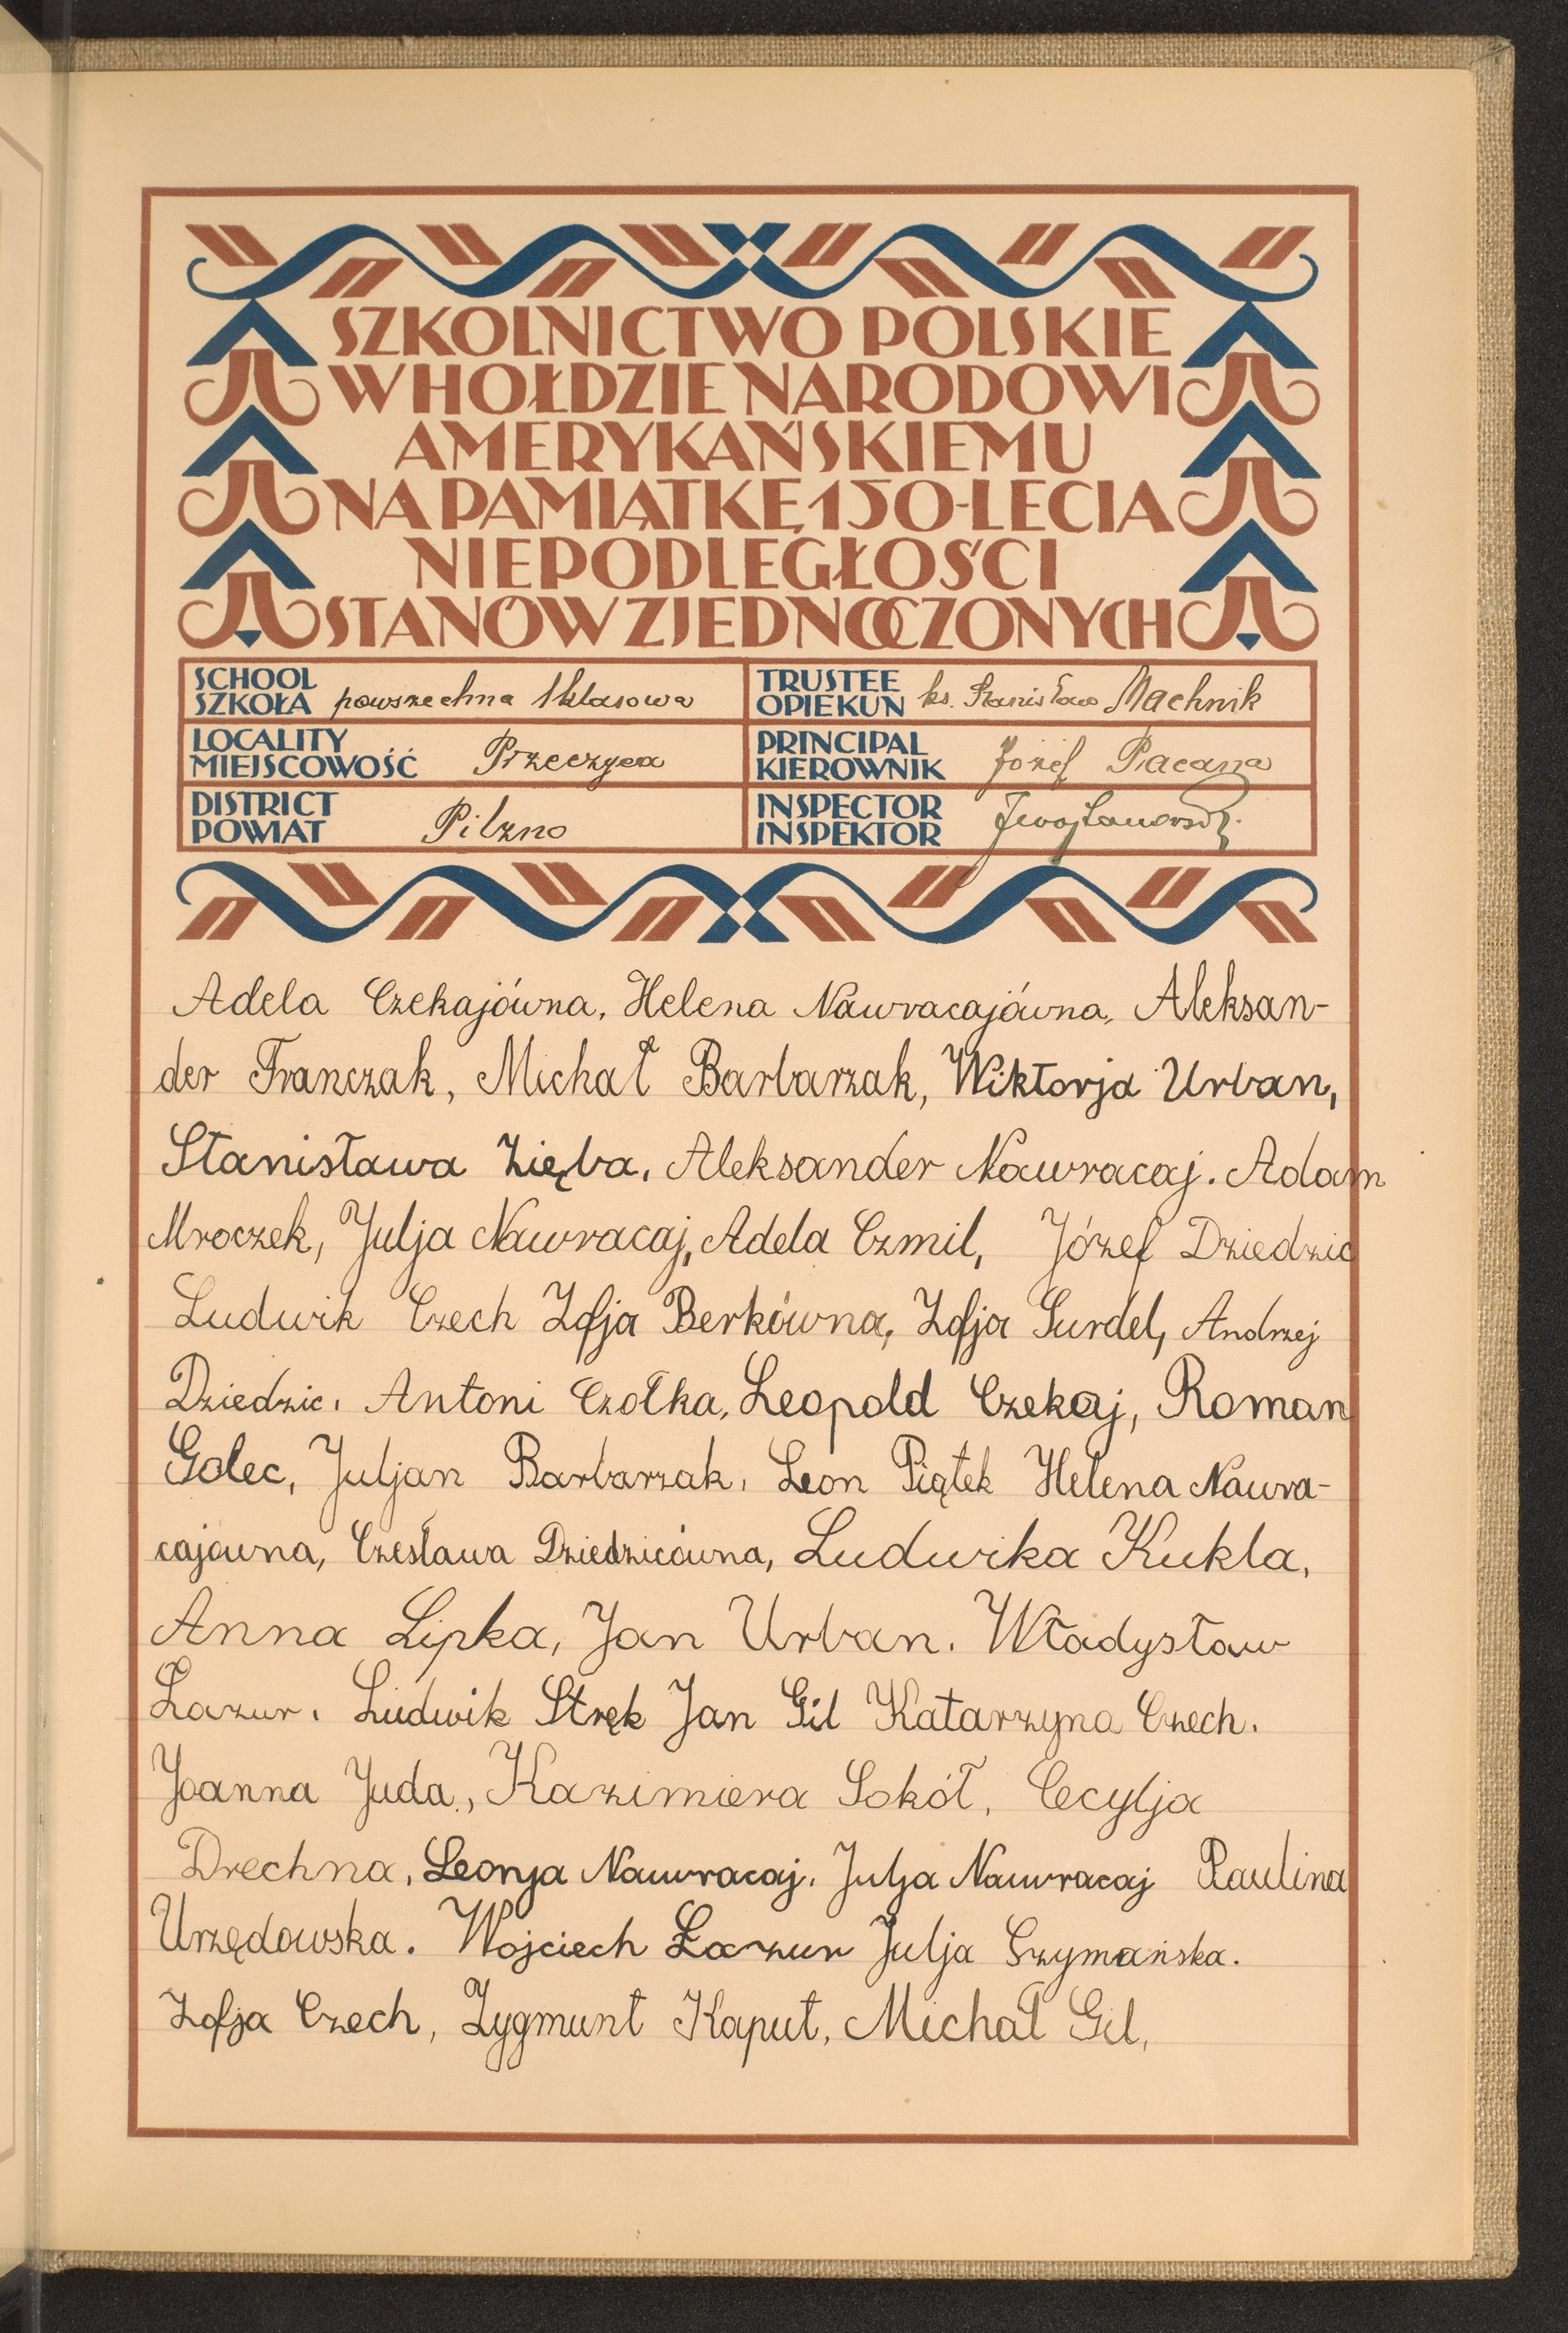 SZKOLNICTWO POLSKIE
W HOŁDZIE NARODOWI
AMERYKAŃSKIEMU
NA PAMIĄTKĘ 150-LECIA
NIEPODLEGŁOŚCI
STANÓW ZJEDNOCZONYCH
SCHOOL
SZKOŁA powszechna 1klasowa
TRUSTEE
OPIEKUN ks. Stanisław Machnik
LOCALITY
MIEJSCOWOŚĆ Przeczyca
PRINCIPAL
KIEROWNIK Józef Pacana
DISTRICT
POWIAT Pilzno
INSPECTOR
INSPEKTOR
Adela Czekajówna, Helena Nawracajówna, Aleksan-
der Franczak, Michał Barbarzak, Wiktorja Urban,
Stanisława Zięba, Aleksander Nawracaj. Adam
Mroczek, Julja Nawracaj, Adela Czmil, Józef Dziedzic
Ludwik Czech Zofja Berkówna, Zofja Surdel, Andrzej
Dziedzic. Antoni Czołka, Leopold Czekaj, Roman
Golec, Juljan Barbarzak, Leon Piątek Helena Nawra-
cajówna, Czesława Dziedzicówna, Ludwika Kukla,
Anna Lipka, Jan Urban. Władysław
Łazur. Ludwik Stręk Jan Gil Katarzyna Czech.
Joanna Juda, Kazimiera Sokół, Cecylja
Drechna, Leonja Nawracaj. Julja Nawracaj Paulina
Urzędowska. Wojciech Łazur Julja Szymańska.
Zofja Czech, Zygmunt Kaput, Michał Gil,